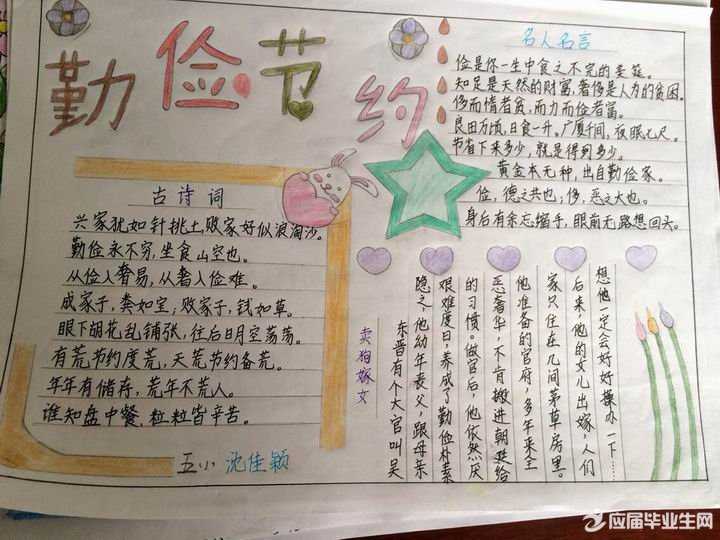 勤俭节约
古诗词
兴家犹如针挑土,败家好似浪淘沙。
勤俭永不穷,坐食山空也。
从俭入奢易,从奢入俭难。
成家子,粪如宝;败家子,钱如草。
眼下胡花乱铺张,往后日月空荡荡。
有荒节约度荒,天荒节约备荒。
年年有储存,荒年不荒人。
谁知盘中餐 粒粒皆辛苦。
五小 沈佳颖
名人名言
俭是你一生中食之不完的美筵。
知足是天然的财富,奢侈是人为的贫困。
侈而惰者贫,而力而俭者富。
良田万顷,日食一升。广厦千间,夜眠七尺。
节省下来多少,就是得到多少。
黄金本无种,出自勤俭家。
俭,德之共也,侈,恶之大也。
身后有余忘缩手,眼前无路想回头。
卖狗嫁女
东晋有个大官叫吴
隐之,他幼年丧父,跟母亲
艰难度日,养成了勤俭朴素
的习惯。做官后,他依然厌
恶奢华,不肯搬进朝廷给
他准备的官府,多年来全
家只住在几间茅草房里。
后来,他的女儿出嫁,人们
想他一定会好好操办一下……
应届毕业生网